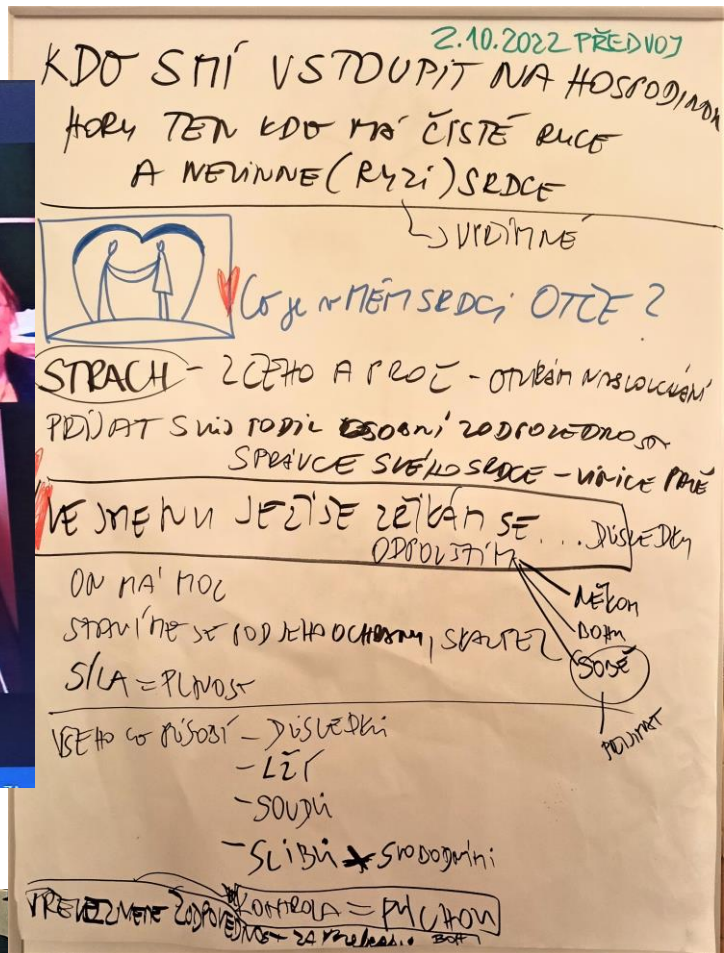 2.10.2022 PŘEDVOJ
KDO SMÍ VSTOUPIT NA HOSPODINOU
HORU TEN KDO MÁ ČISTÉ RUCE
A NEVINNE (RYZÍ) SRDCE
Co je v MÉM SRDCI OTČE?
STRACH - Z ČEHO A PROČ - OTVÍRÁM NASLOUCHÁNÍ
PŘIJAT SVŮJ PODÍL OSOBNÍ ZODPOVĚDNOSTI
SPRÁVCE SVÉHO SRDCE - VINICE PÁNĚ
VE JMENU JEŽÍŠE ZŘÍKÁM SE ... DŮSLEDKY
ODPOUŠTÍM
NĚKOM
BOHU
SOBĚ
PŘIJÍMAT
ON MÁ MOC
STAVÍME SE POD JEHO OCHRANU,
SÍLA = PLNOST
VŠEHO CO PŮSOBÍ - DŮSLEDKŮ
- LŽÍ
- SOUDŮ
- SLIBŮ
KONTROLA = PÝCHOU
BOHU